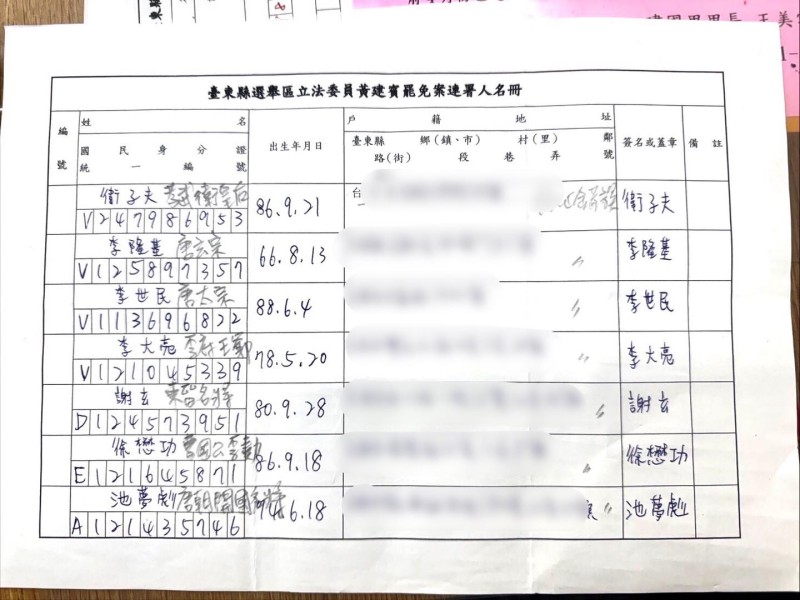 建國里里長 王美
臺東縣選舉區立法委員黃建賓罷免案連署人名冊
編號
姓名
國民身分證統一編號
出生年月日
戶籍地址
臺東縣 鄉(鎮、市) 村(里) 鄰
路(街) 段 巷 弄 號
簽名或蓋章
備註
衛子夫 孝武衛皇后
V247986953
86.9.21
台
衛子夫
李隆基 唐玄宗
V125897357
66.8.13
〃
李隆基
李世民 唐太宗
V113696822
88.6.4
〃
李世民
李大亮
V121045339
78.5.20
〃
李大亮
謝玄 東晉名將
D124573951
80.9.28
〃
謝玄
徐懋功 曹國公李勣
E121645871
86.9.18
〃
徐懋功
池夢彪 唐朝開國名將
A121435746
74.6.18
〃
池夢彪